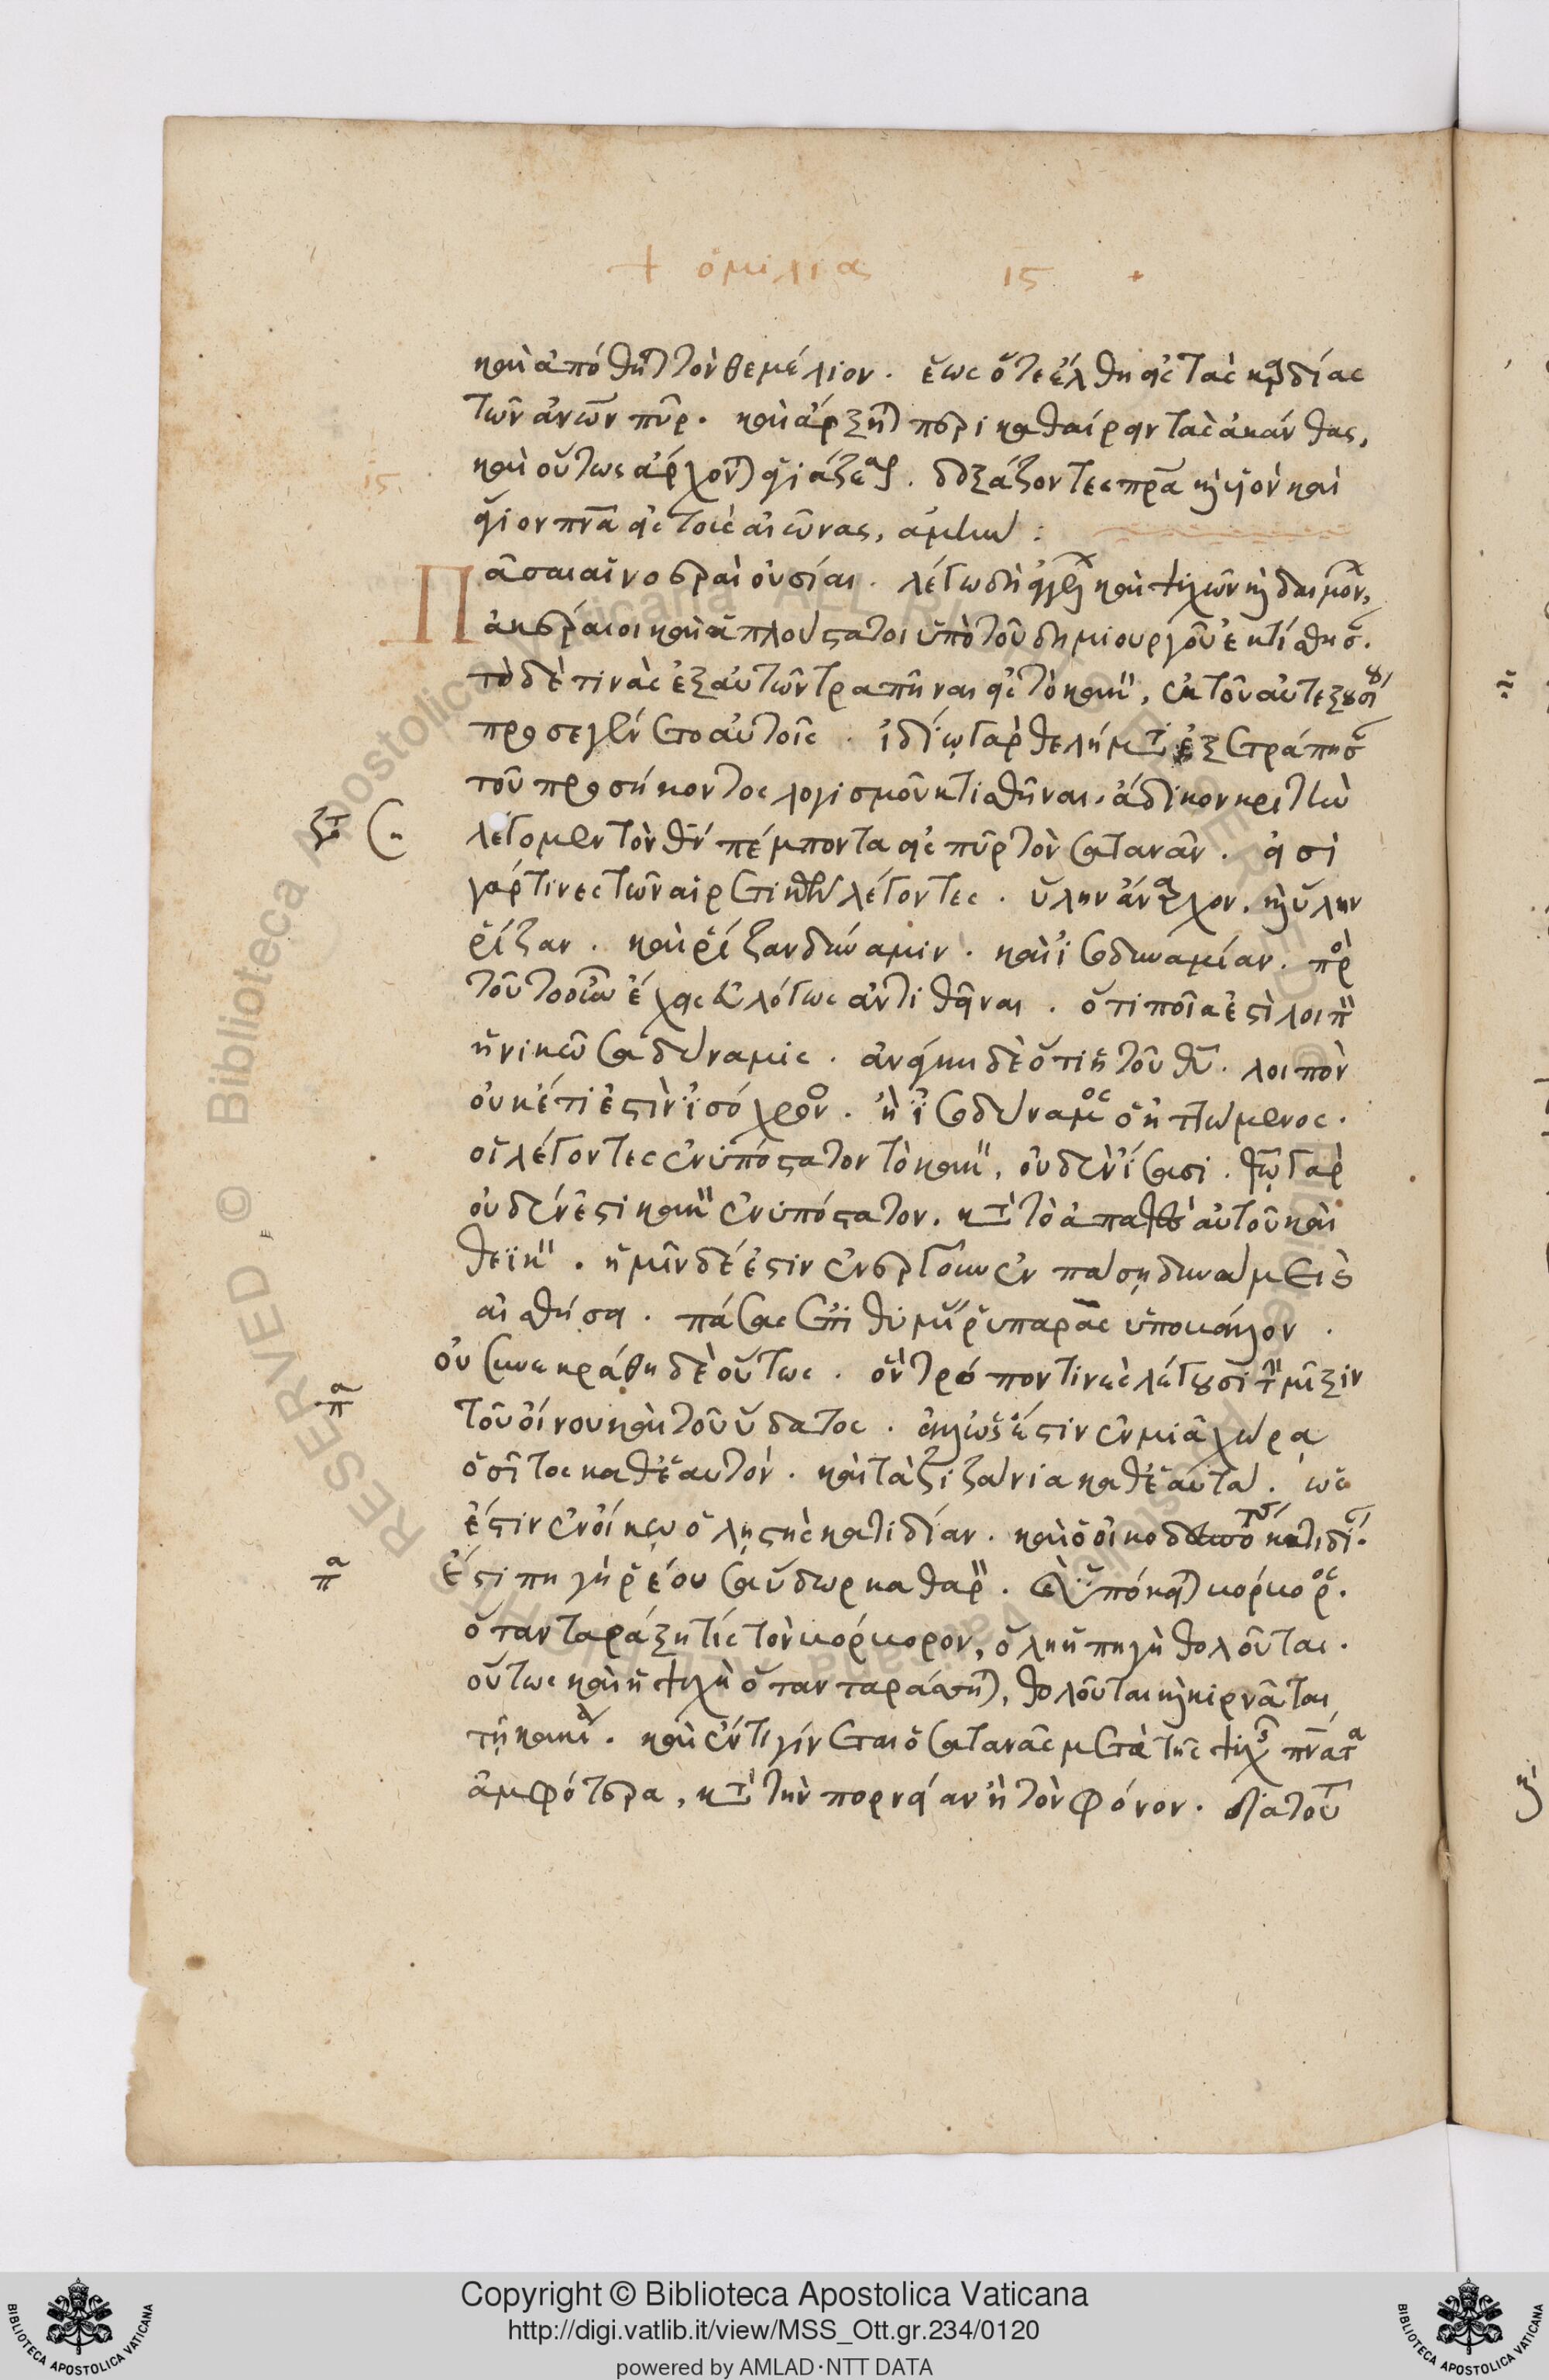 + ὁμιλία 15 +
καὶ ἀπόθηται τὸν θεμέλιον. ἕως ὅτε ἔλθη εἰς τὰς καρδίας
τῶν ἀνων πῦρ. καὶ ἄρξηται περικαθαίρειν τὰς ἀκάνθας,
καὶ οὕτως ἄρχονται ἁγιάζεσθαι. δοξάζοντες πρα καὶ υἱὸν καὶ
15.
ἅγιον πνα εἰς τοὺς αἰῶνας, ἀμήν:
Πᾶσαι αἱ νοεραὶ οὐσίαι. λέγω δὴ ἀγγέλων καὶ ψυχῶν καὶ δαιμόνων,
ἀκέραιοι καὶ ἁπλούσταται ὑπὸ τοῦ δημιουργοῦ ἐκτίσθησαν.
τὸ δὲ τινὰς ἐξ αὐτῶν τραπῆναι εἰς τὸ κακὸν, ἐκ τοῦ αὐτεξουσίου
προσεγένετο αὐτοῖς. ἰδίῳ γὰρ θελήματι ἐξετράπησαν
τοῦ προσήκοντος λογισμοῦ κτισθῆναι, ἄδικον κριτὴν
λέγομεν τὸν θν πέμποντα εἰς πῦρ τὸν σατανᾶν. εἰσὶ
γάρ τινες τῶν αἱρετικῶν λέγοντες. ὕλην ἄναρχον. καὶ ὕλην
ῥίζαν. καὶ ῥίζαν δύναμιν. καὶ ἰσοδυναμίαν. πρὸς
τοῦτο οὖν ἔχεις εὐλόγως ἀντιθεῖναι. ὅτι ποία ἐστὶ λοιπὸν
ἡ νικῶσα δύναμις. ἀνάγκη δὲ ὅτι ἡ τοῦ θυ. λοιπὸν
οὐκέτι ἐστὶν ἰσόχρονος. ἢ ἰσοδύναμος ὁ ἡττώμενος.
οἱ λέγοντες ἐνυπόστατον τὸ κακὸν, οὐδὲν ἴσασι. θῷ γὰρ
οὐδέν ἐστι κακὸν ἐνυπόστατον. κατὰ τὸ ἀπαθὲς αὐτοῦ καὶ
θεϊκὸν. ἡμῖν δέ ἐστιν ἐνεργοῦν ἐν πάσῃ δυνάμει καὶ
αἰσθήσει. πάσας ἐπιθυμίας ῥυπαρὰς ὑποβάλλον.
οὐ συνεκράθη δὲ οὕτως. ὃν τρόπον τινὲς λέγουσι τὴν μῖξιν
τοῦ οἴνου καὶ τοῦ ὕδατος. ἀλλ' ὡς ἔστιν ἐν μιᾷ χώρα
ὁ σῖτος καθ' ἑαυτόν. καὶ τὰ ζιζάνια καθ' ἑαυτά. ὡς
ἔστιν ἐν οἴκῳ ὁ λῃστὴς κατιδίαν. καὶ ὁ οἰκοδεσπότης κατιδίαν.
ἔστι πηγὴ ῥέουσα ὕδωρ καθαρὸν. ἀλλ' ὑπόκειται βόρβορος.
ὅταν ταράξη τίς τὸν βόρβορον, ὅλη ἡ πηγὴ θολοῦται.
οὕτως καὶ ἡ ψυχὴ ὅταν ταράσσηται, θολοῦται καὶ κιρνᾶται
τῇ κακίᾳ. καὶ ἕν τι γίνεται ὁ σατανᾶς μετὰ τῆς ψυχῆς πνατα
ἀμφότερα, κατὰ τὴν πορνείαν ἢ τὸν φόνον. διὰ τοῦτο
Copyright © Biblioteca Apostolica Vaticana
http://digi.vatlib.it/view/MSS_Ott.gr.234/0120
powered by AMLAD·NTT DATA